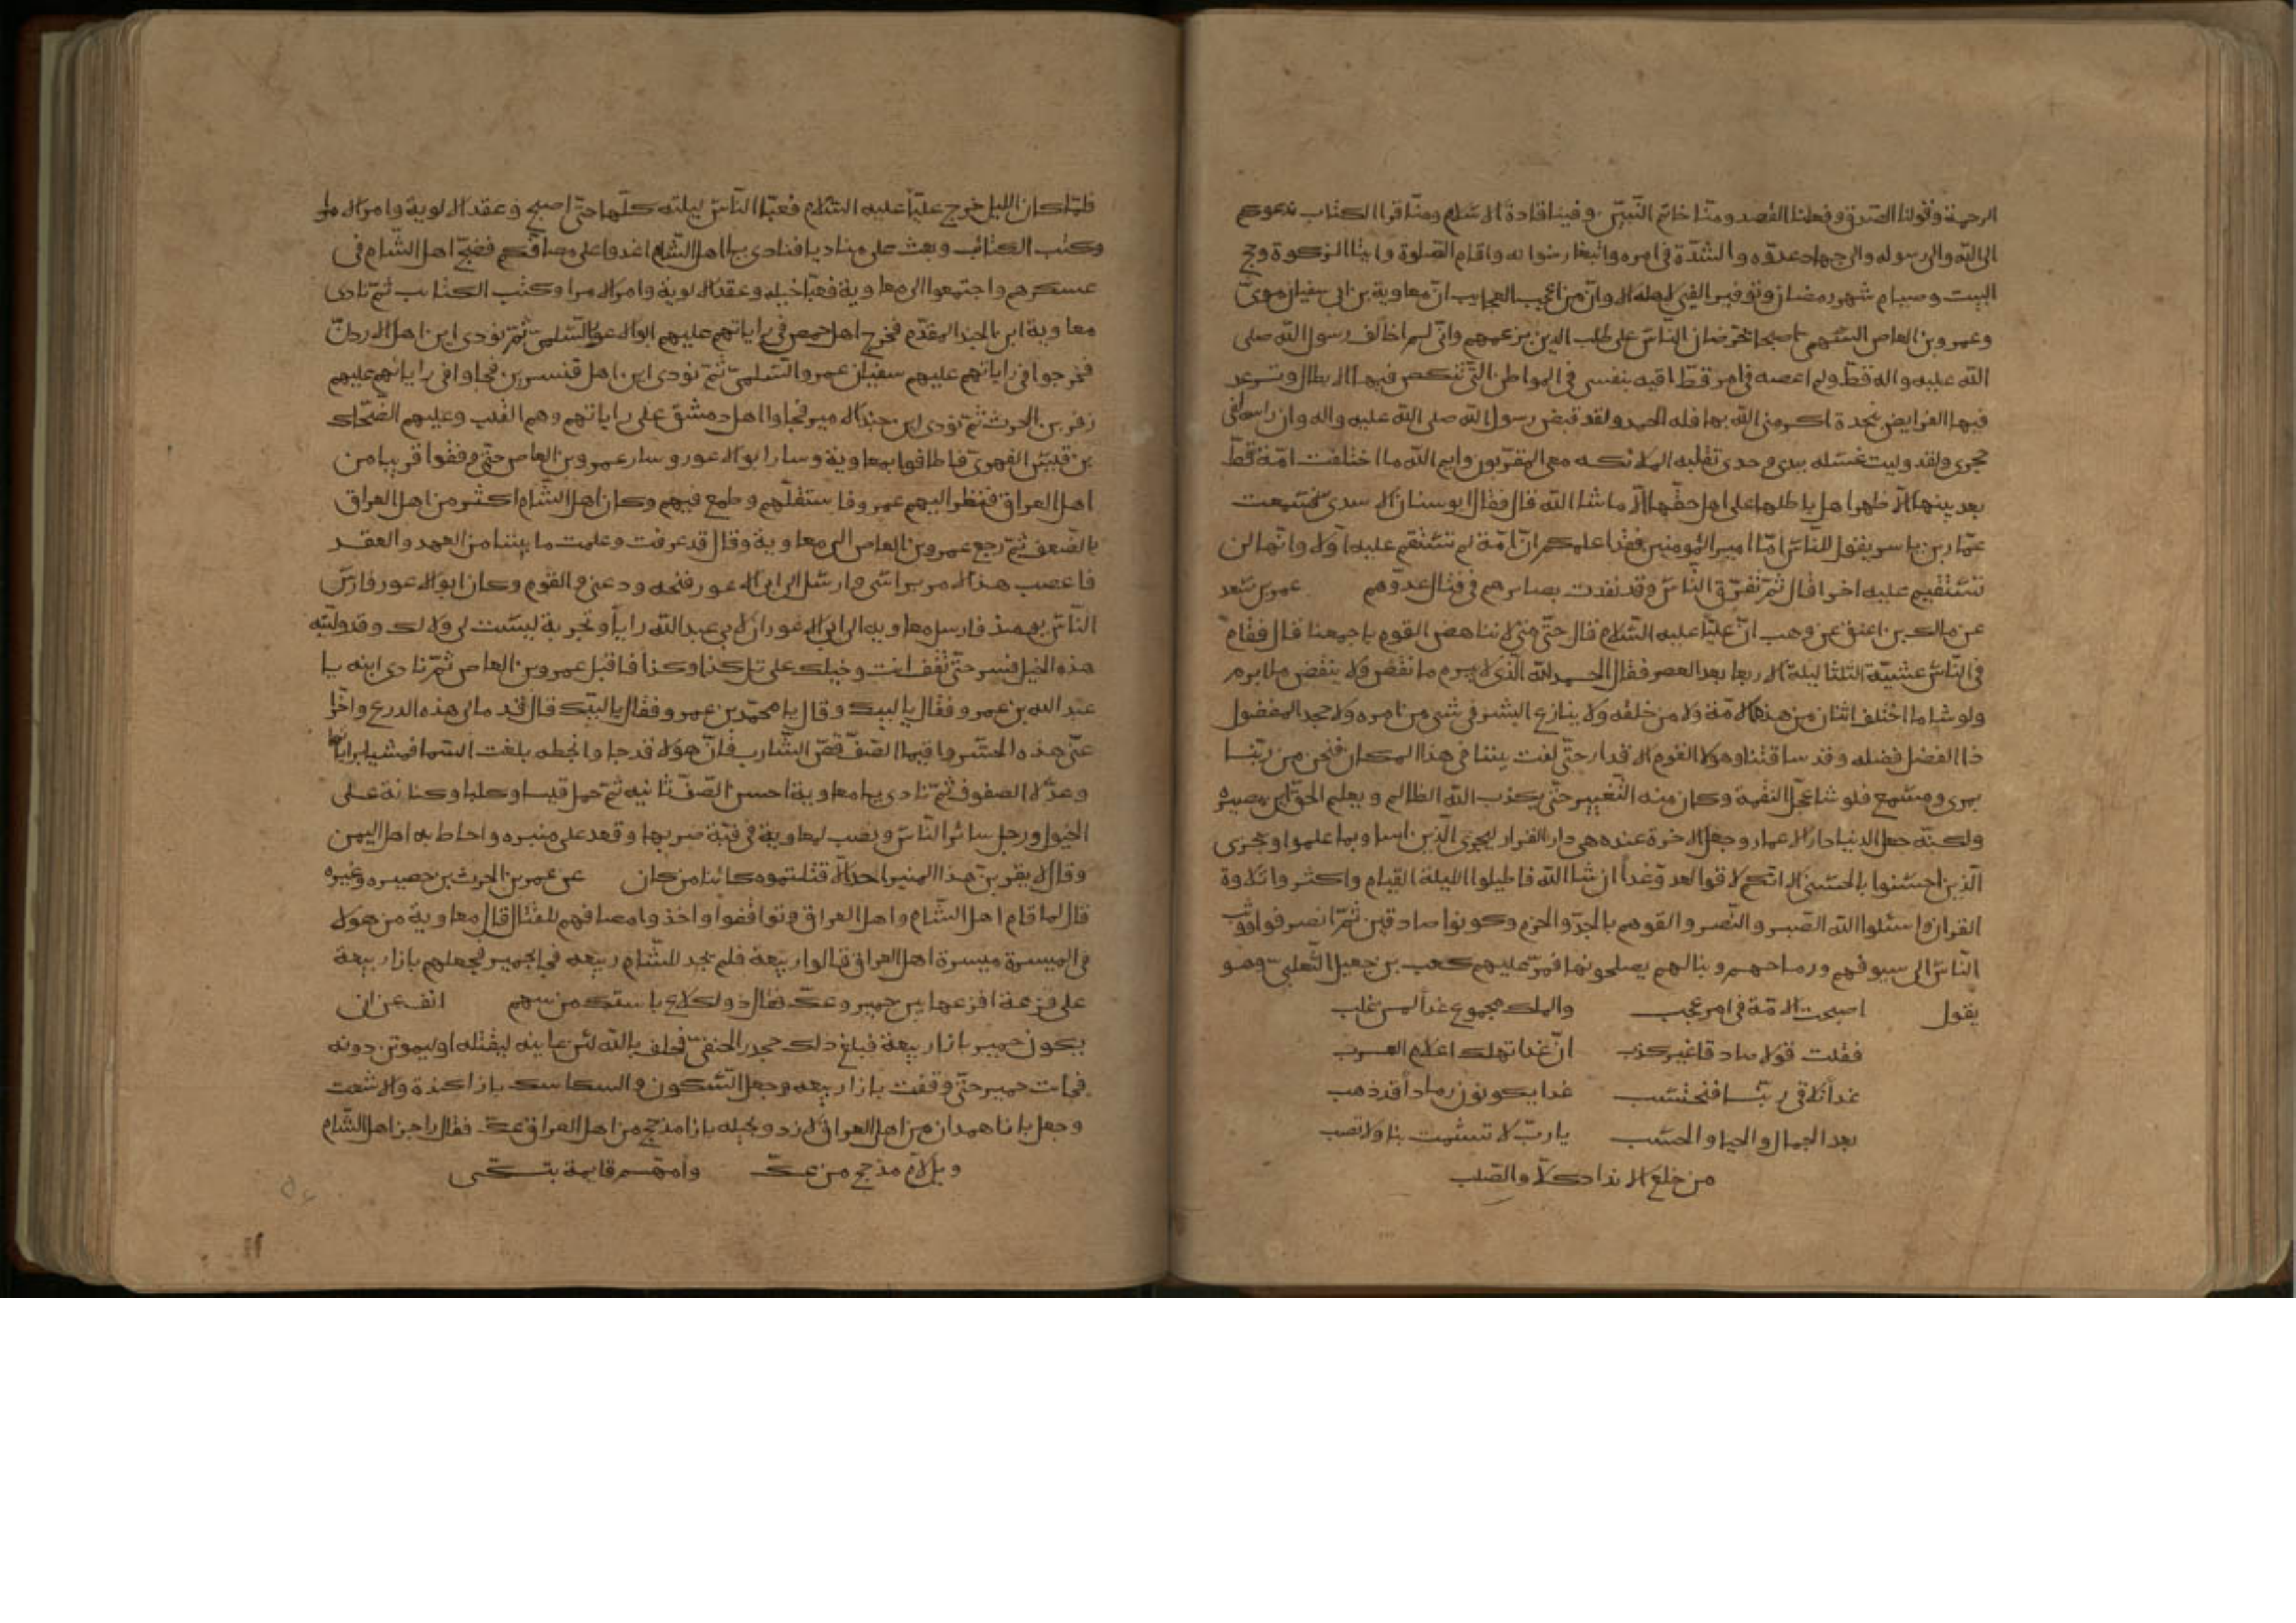 الرحمة وقولنا الصدق وفعلنا القصد ومنّا خاتم النّبيّين وفينا قادة الاسلام ومنّا قرا الكتاب ندعوكم
الى الله والى رسوله والى جهاد عدوّه والشدّة فى امره وابتغا رضوانه واقام الصّلوة وايتا الزكوة وحج
البيت وصيام شهر رمضان وتوفير الفئ لاهله الا وانّ من اعجب العجايب انّ معاوية بن ابى سفيان الاموىّ
وعمرو بن العاص السّهمىّ اصبحا يحرّضان النّاس على طلب الدين بزعمهم وانّى لم اخالف رسول الله صلى
الله عليه واله قطّ ولم اعصه فى امر قطّ اقيه بنفسى فى المواطن الّتى تنكص فيها الابطال وترعد
فيها الفرايص نجدة اكرمنى الله بها فله الحمد ولقد قبض رسول الله صلى الله عليه واله وان راسه لفى
حجرى ولقد وليت غسله بيدى وحدى تقلّبه الملائكه معى المقرّبون وايم الله ما اختلفت امّة قطّ
بعد نبيها الّا ظهر اهل باطلها على اهل حقّها الّا ماشا الله قال فقال ابو سنان الاسدىّ فسمعت
عمّار بن ياسر يقول للنّاس امّا امير المؤمنين فقد اعلمكم انّ الامّة لم تستقم عليه اوّلا وانّها لن
تستقيم عليه اخرا قال ثمّ تفرّق النّاس وقد نفذت بصايرهم فى قتال عدوّهم عمر بن سعد
عن مالك بن اعين عن زيد بن وهب انّ عليّا عليه السّلام قال حتّى متى لا نناهض القوم باجمعنا قال فقام
فى النّاس عشيّة الثلثا ليلة الاربعا بعد العصر فقال الحمد لله الّذى لا يبرم ما نقض ولا ينقض ما ابرم
ولو شا ما اختلف اثنان من هذه الامّة ولا من خلقه ولا ينازع البشر فى شى من امره ولا جحد المفضول
ذا الفضل فضله وقد ساقتنا وهولا القوم الاقدار حتّى لفت بيننا فى هذا المكان فنحن من ربّنا
بمرى ومسمع فلو شا عجّل النقمة وكان منه التّغيير حتّى يكذب الله الظالم ويعلم الحقّ اين مصيره
ولكنّه جعل الدنيا دار الاعمار وجعل الاخرة عنده هى دار القرار ليجزى الّذين اساوا بما عملوا ويجزى
الّذين احسنوا بالحسنى الا انّكم لاقوا العدوّ غداً ان شا الله فاطيلوا الليلة القيام واكثروا تلاوة
القران واسئلوا الله الصّبر والنّصر والقوهم بالجدّ والحزم وكونوا صادقين ثمّ انصرفوا ووثب
النّاس الى سيوفهم ورماحهم ونبالهم يصلحونها فمرّ عليهم كعب بن جعيل التّغلبى وهو
يقول اصبحت الامّة فى امر عجب والملك مجموع غداً لمن غلب
فقلت قولا صادقا غير كذب انّ غدا تهلك اعلام العرب
غداً نلاقى ربّنا فنحتسب غدا يكونون رماداً قد ذهب
بعد الجمال والحيا والحسب يا ربّ لا تشمت بنا ولا تصب
من خلع الانداد كلّا والصّلب
فلمّا كان الليل خرج علىّ عليه السّلام فعبّا النّاس ليلته كلّها حتّى اصبح وعقد الالوية وامر الامرا
وكتب الكتائب وبعث على مناديا فنادى يا اهل الشّام اغدوا على مصافّكم فضجّ اهل الشّام فى
عسكرهم واجتمعوا الى معاوية فعبّا خيله وعقد الالوية وامر الامرا وكتب الكتايب ثمّ نادى
معاوية اين الجند المقدّم فخرج اهل حمص فى راياتهم عليهم ابو الاعور السّلمىّ ثمّ نودى اين اهل الاردنّ
فخرجوا فى راياتهم عليهم سفيان بن عمرو السّلمىّ ثمّ نودى اين اهل قنسرين فجاوا فى راياتهم عليهم
زفر بن الحرث ثمّ نودى اين جند الامير فجاوا اهل دمشق على راياتهم وهم القلب وعليهم الضّحّاك
بن قيس الفهرىّ فاطافوا بمعاوية وسار ابو الاعور وسار عمرو بن العاص حتى وقفوا قريبا من
اهل العراق فنظر اليهم عمرو فاستقلّهم وطمع فيهم وكان اهل الشّام اكثر من اهل العراق
بالضّعف ثمّ رجع عمرو بن العاص الى معاوية وقال قد عرفت وعلمت ما بيننا من العهد والعقد
فاعصب هذا الامر براسى وارسل الى ابى الاعور فنحه ودعنى والقوم وكان ابو الاعور فارس
النّاس يومئذ فارسل معاويه الى ابى الاعور ان لابى عبد الله راياً وتجربة ليست لى ولا لك وقد ولّيته
هذه الخيل فسر حتّى تقف انت وخيلك على تل كذا وكذا فاقبل عمرو بن العاص ثمّ نادى ابنه يا
عبد الله بن عمرو فقال يا لبيك وقال يا محمّد بن عمرو فقال يا لبّيك قال قدّما لى هذه الدرع واخّرا
عنّى هذه الحسّر واقيما الصّفّ قصّ الشّارب فانّ هولا قد جاوا بخطه بلغت السّما فمشيا براياتهما
وعدّلا الصفوف ثمّ نادى يا معاوية احسن الصّفّ ثانيه ثمّ حمل قيسا وكلبا وكنانة على
الخيول ورجل سائر النّاس ونصب لمعاوية فى قبّة ضربها وقعد على منبره واحاط به اهل اليمن
وقال لا يقربنّ هذا المنبر احد الّا قتلتموه كائنا من كان عن عمر بن الحرث بن حصيره وغيره
قال لما قام اهل الشّام واهل العراق وتواقفوا واخذوا مصافهم للقتال قال معاوية من هولا
فى الميسرة ميسرة اهل العراق قالوا ربيعة فلم يجد للشّام ربيعه فجا بحمير فجعلهم بازا ربيعة
على قرعة اقرعها بين حمير وعكّ فقال ذو الكلاع باستك من سهم انف من ان
يكون حمير بازا ربيعة فبلغ ذلك جحدر الحنفىّ فحلف بالله لئن عاينه ليقتله او ليموتن دونه
فجات حمير حتّى وقفت بازا ربيعه وجعل السّكون والسكاسك بازا كندة والاشعت
وجعل بازا همدان من اهل العراق الازد وبجيله بازا مذحج من اهل العراق عكّ فقال راجز اهل الشّام
ويل لامّ مذحج من عكّ وامّهم قايمة بتكّى